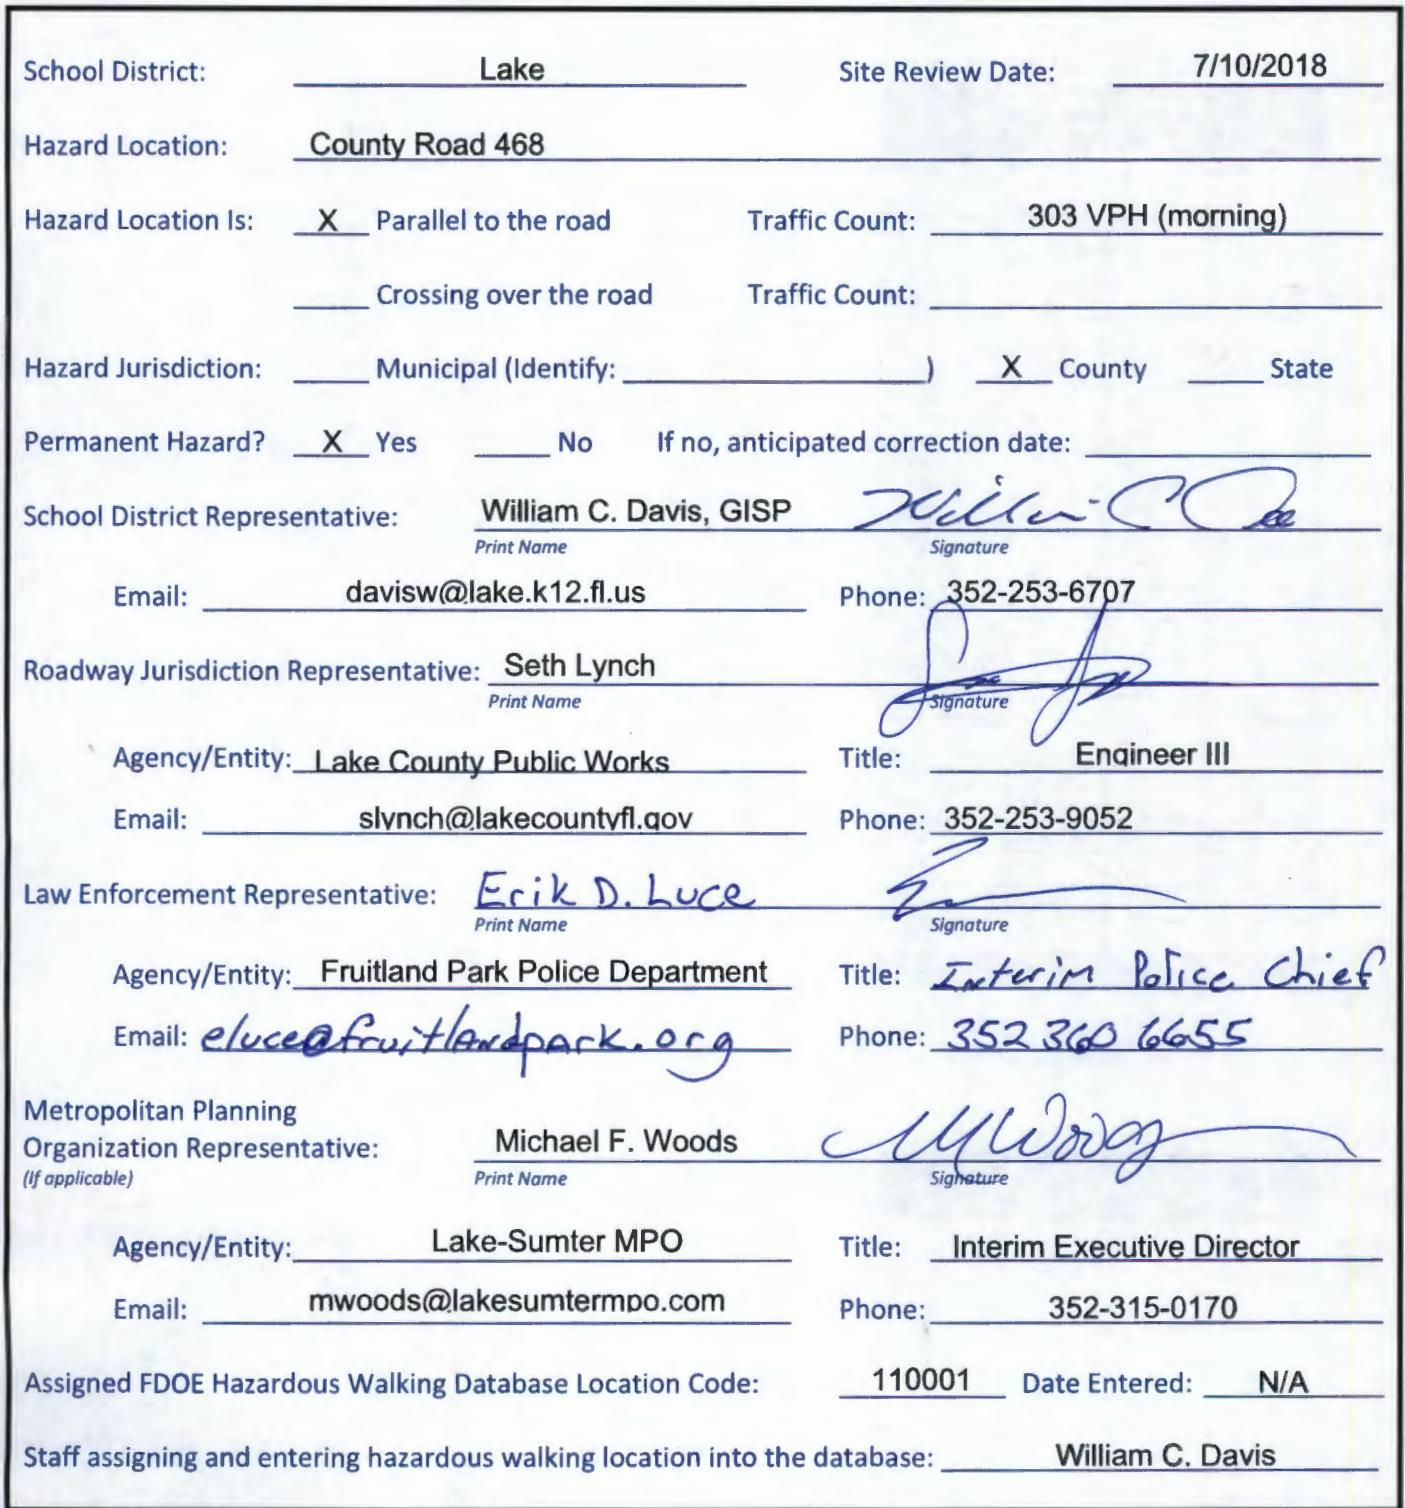 School District: Lake Site Review Date: 7/10/2018
Hazard Location: County Road 468
Hazard Location Is: X Parallel to the road Traffic Count: 303 VPH (morning)
Crossing over the road Traffic Count:
Hazard Jurisdiction: Municipal (Identify: ) X County State
Permanent Hazard? X Yes No If no, anticipated correction date:
School District Representative: William C. Davis, GISP
Print Name Signature
Email: davisw@lake.k12.fl.us Phone: 352-253-6707
Roadway Jurisdiction Representative: Seth Lynch
Print Name Signature
Agency/Entity: Lake County Public Works Title: Engineer III
Email: slynch@lakecountyfl.gov Phone: 352-253-9052
Law Enforcement Representative: Erik D. Luce
Print Name Signature
Agency/Entity: Fruitland Park Police Department Title: Interim Police Chief
Email: eluce@fruitlandpark.org Phone: 352 360 6655
Metropolitan Planning
Organization Representative: Michael F. Woods MWoods
(If applicable) Print Name Signature
Agency/Entity: Lake-Sumter MPO Title: Interim Executive Director
Email: mwoods@lakesumtermpo.com Phone: 352-315-0170
Assigned FDOE Hazardous Walking Database Location Code: 110001 Date Entered: N/A
Staff assigning and entering hazardous walking location into the database: William C. Davis